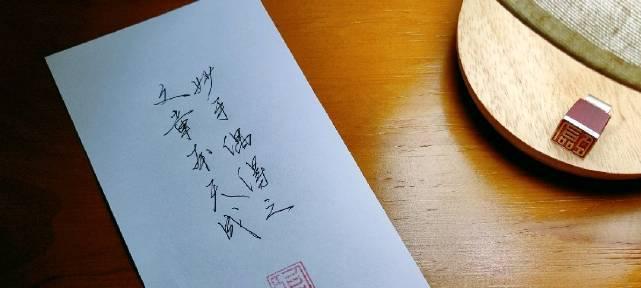 文章本天成
妙手偶得之